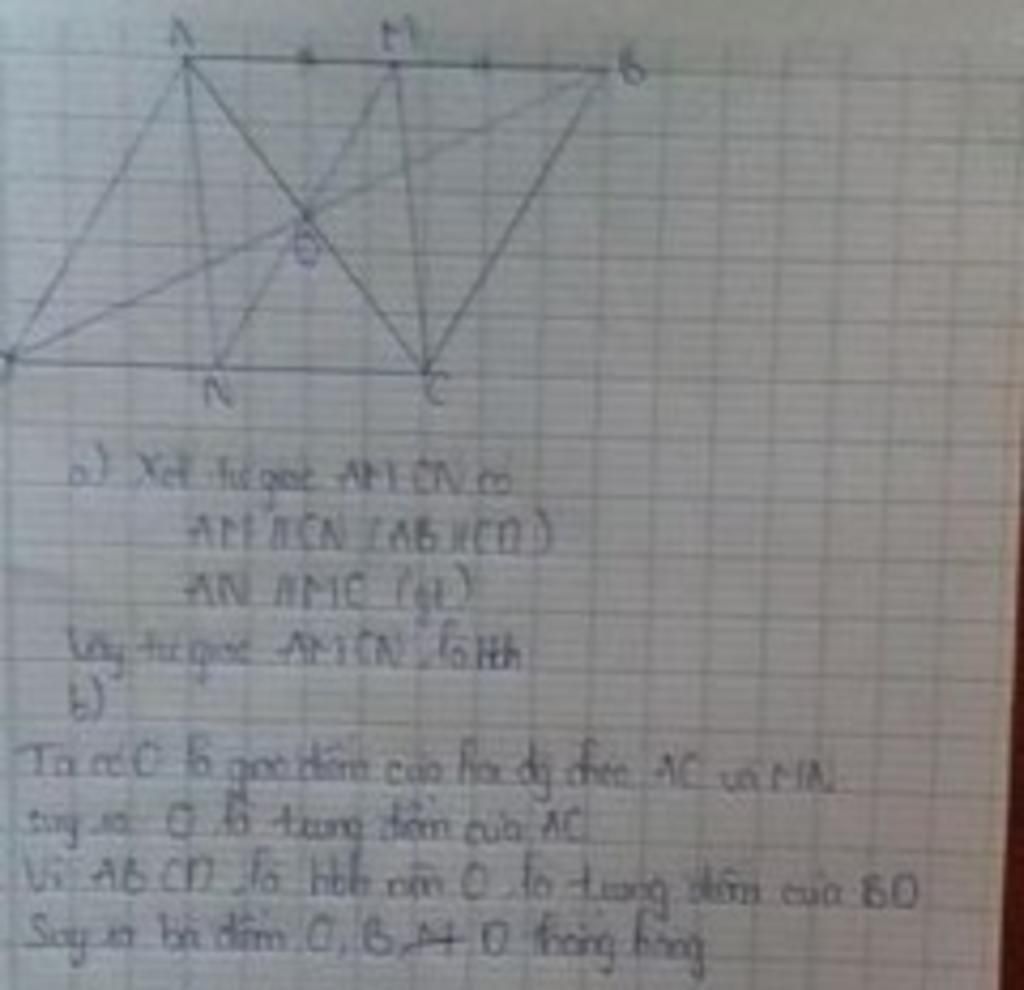 A M B
O
N C
a) Xét tứ giác AMCN có
AM // CN (AB // CD)
AN // MC (gt)
Vậy tứ giác AMCN là hbh
b)
Ta có O là giao điểm của hai đg chéo AC và MN
suy ra O là trung điểm của AC
Vì ABCD là hbh nên O là trung điểm của BD
Suy ra ba điểm O, B, D thẳng hàng